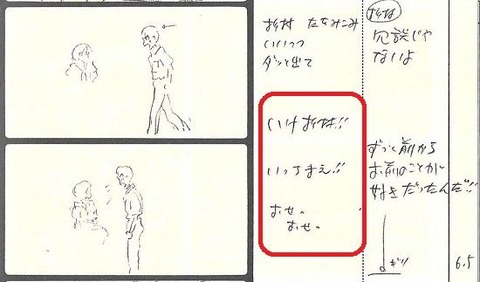 杉村 たたみこみ
いいつつ
ダッと出て
いけ杉村!!
いっちまえ!!
おせ。
おせ。
杉村
冗談じゃ
ないよ
ずっと前から
お前のことが
好きだったんだ!!
6.5